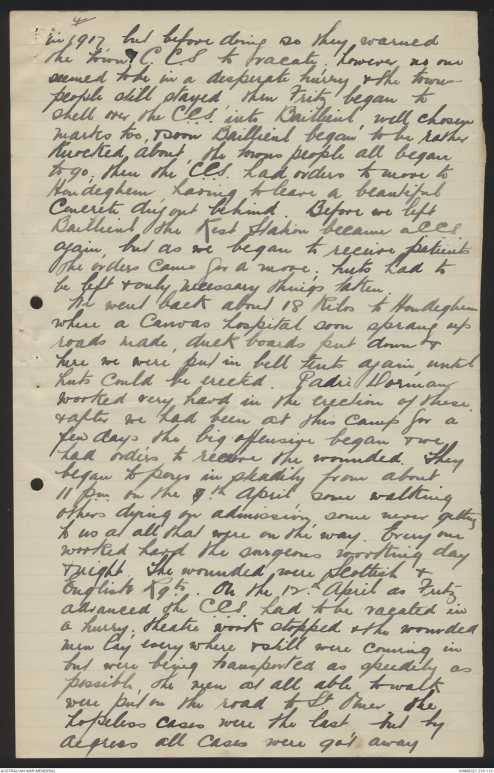 4
in 1917 but before doing so they warned
the town & C.C.S. to vacate, however no one
seemed to be in a desperate hurry & the towns
people still stayed then Fritz began to
shell over the CCS. into Bailleul, well chosen
marks too, & soon Baillieul began to be rather
knocked about, the towns people all began
to go, then the CCS. had orders to move to
Hondeghem, having to leave a beautiful
Concrete dug out behind. Before we left
Baillieul the Rest Station became a CCS
again, but as we began to receive patients
the orders came for a move, huts had to
be left & only necessary things taken.
We went back about 18 Kilos to Hondeghem
where a Canvas hospital soon sprang up
roads made, duck boards put down &
here we were put in bell tents again until
huts could be erected. Padre Dorman
worked very hard in the erection of these.
& after we had been at this camp for a
few days the big offensive began & we
had orders to receive the wounded. They
began to pour in steadily from about
11 p.m. on the 9th April some walking
others dying on admission, some never getting
to us at all that were on the way. Every one
worked hard the surgeons working day
& night. The wounded were Scottish &
English Rgts. On the 12th April as Fritz
advanced the CCS. had to be vacated in
a hurry, theatre work stopped & the wounded
men lay everywhere & still were coming in
but were being transported as speedily as
possible, the men at all able to walk
were put on the road to St Omer, the
hopeless cases were the last but by
degrees all cases were got away
AUSTRALIAN WAR MEMORIAL